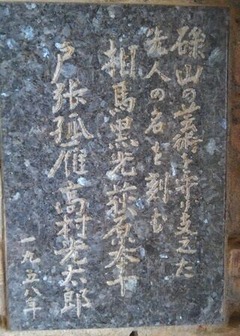 碌山の藝術を守り支えた
先人の名を刻む
相馬黒光 荻原本十
戸張孤雁 高村光太郎
一九五八年